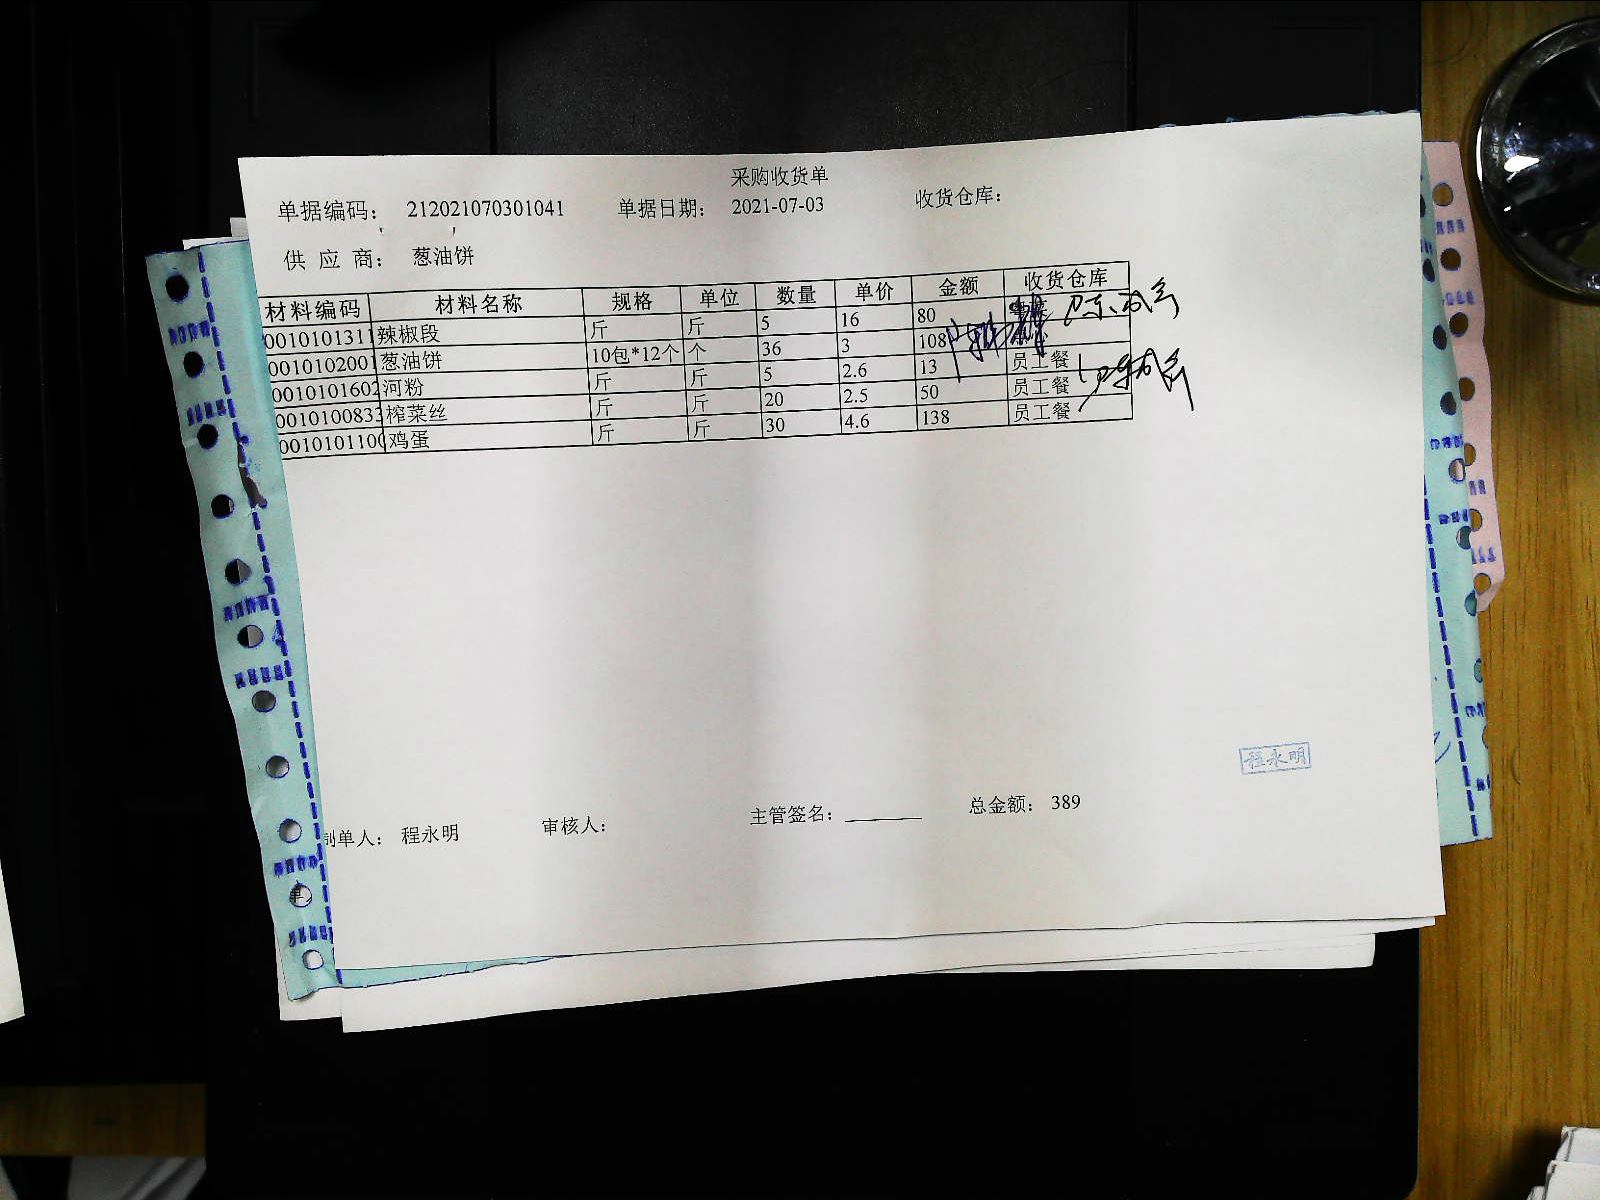 采购收货单
单据编码： 212021070301041 单据日期： 2021-07-03 收货仓库：
供 应 商： 葱油饼
材料编码 材料名称 规格 单位 数量 单价 金额 收货仓库
0010101311 辣椒段 斤 斤 5 16 80
0010102001 葱油饼 10包*12个 个 36 3 108
0010101602 河粉 斤 斤 5 2.6 13 员工餐
0010100833 榨菜丝 斤 斤 20 2.5 50 员工餐
0010101100 鸡蛋 斤 斤 30 4.6 138 员工餐
程永明
制单人： 程永明 审核人： 主管签名： 总金额： 389